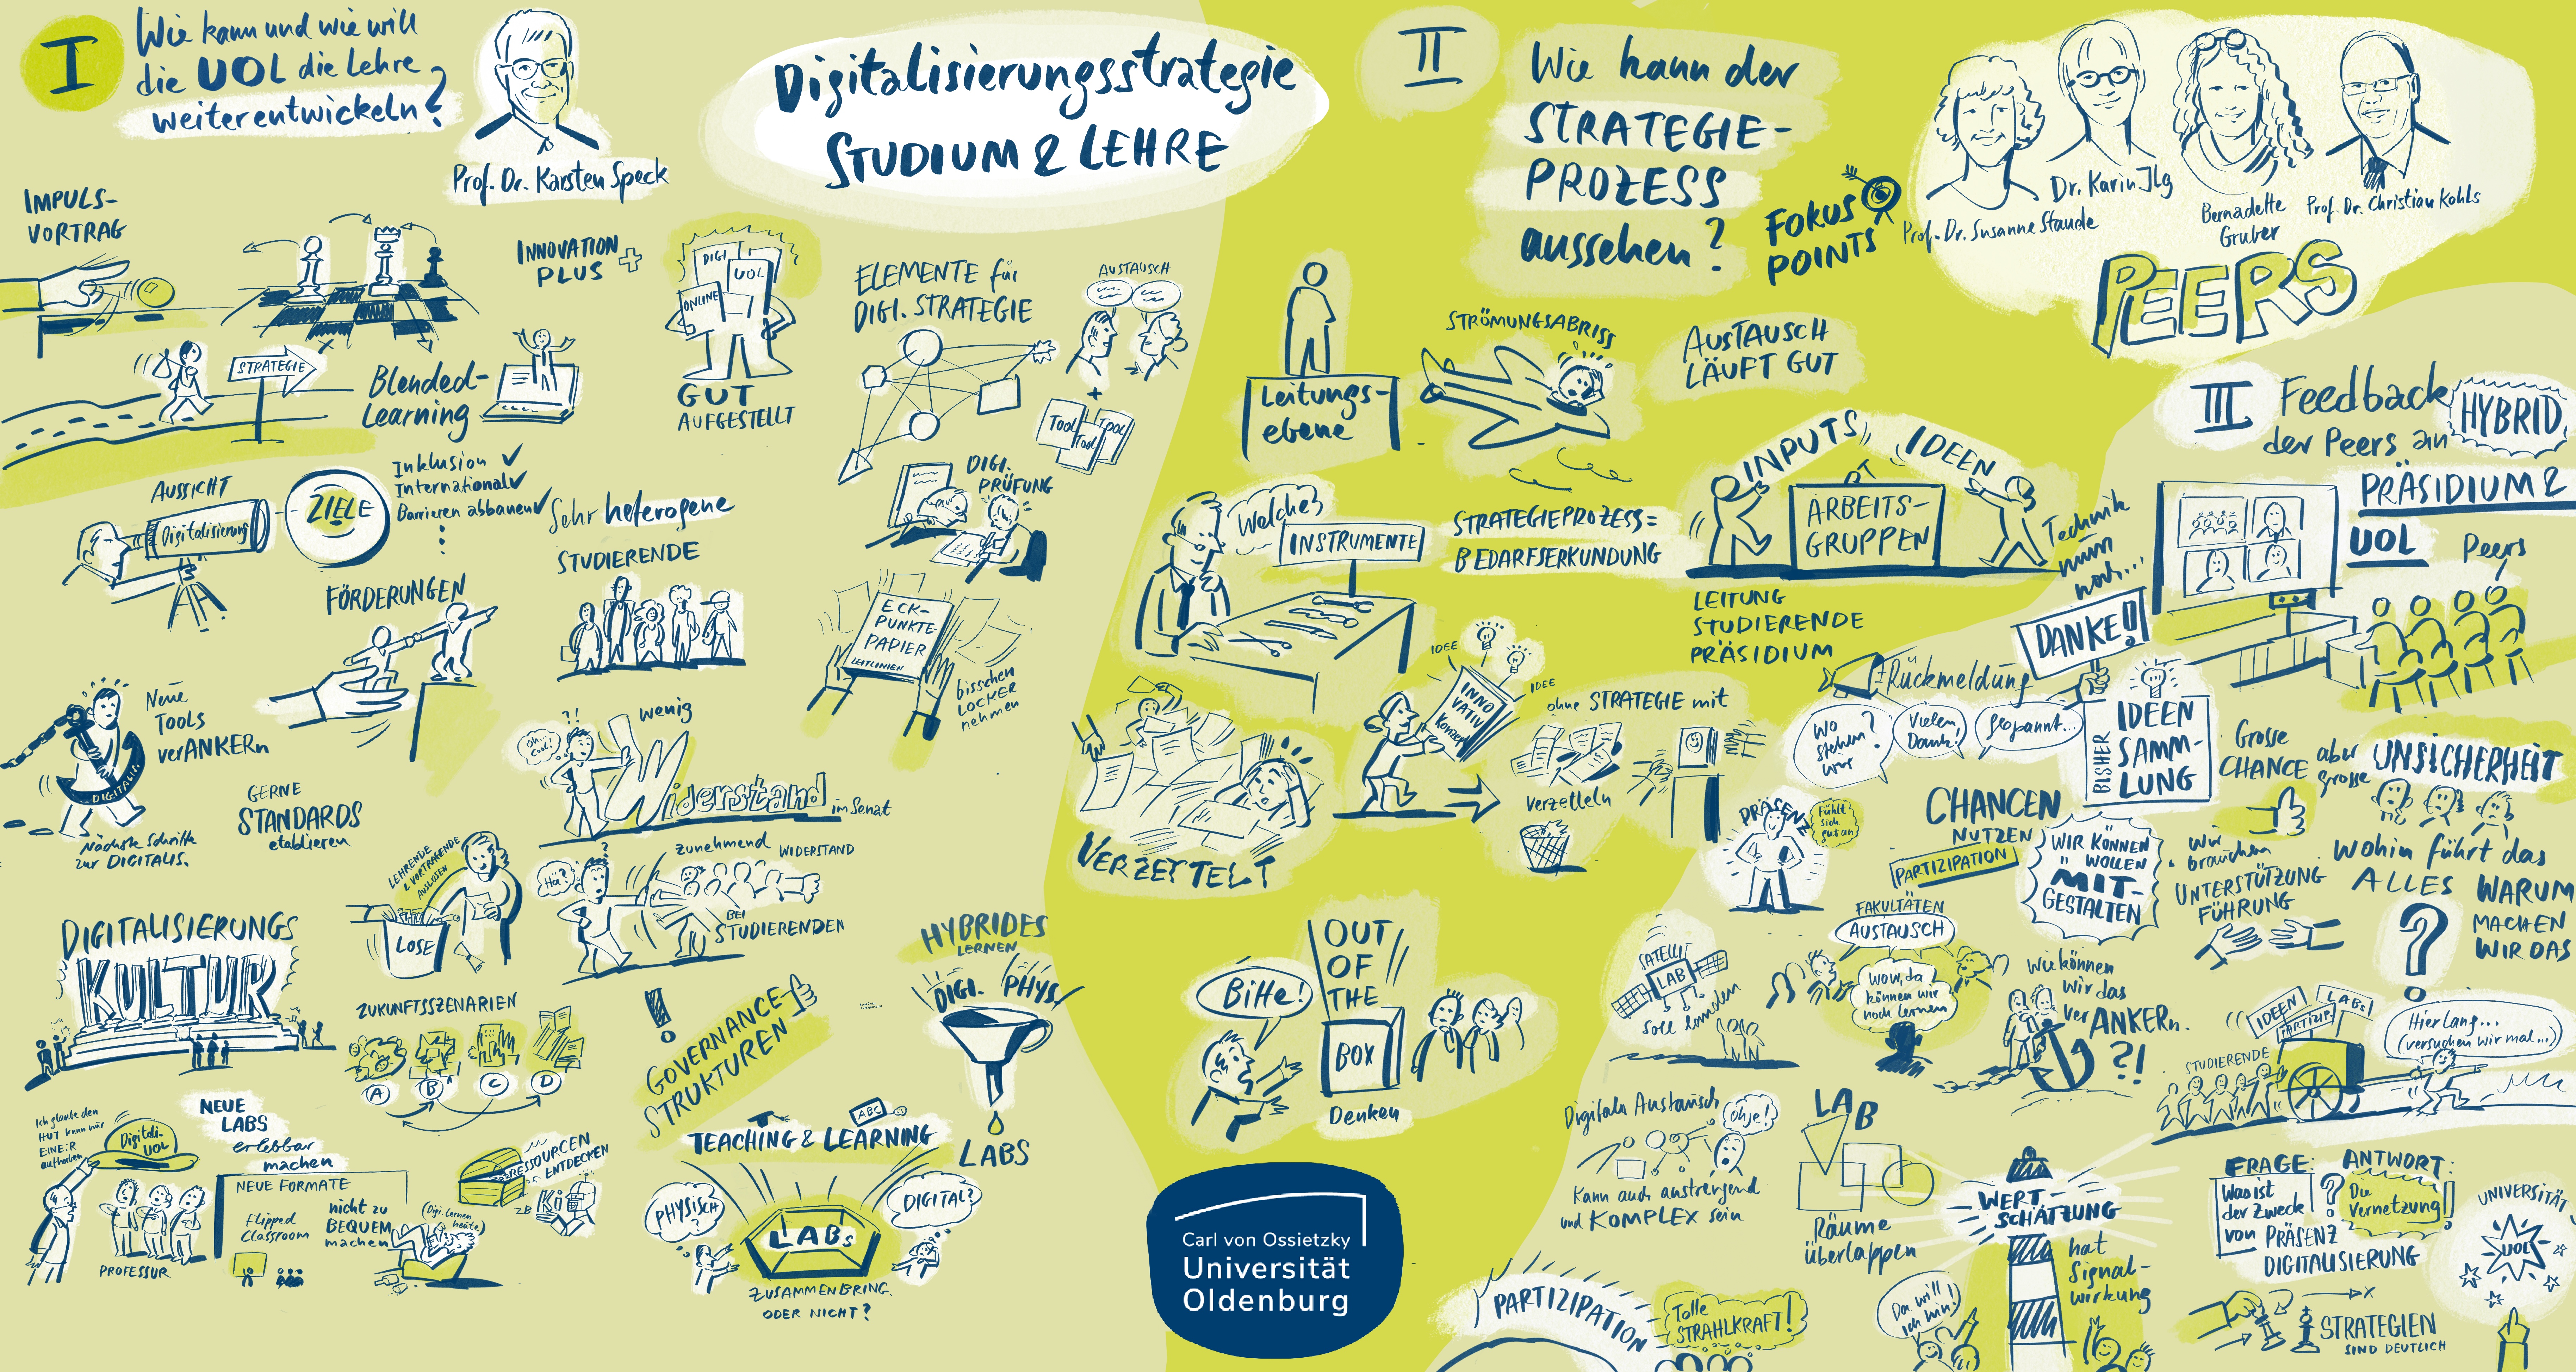 I
Wie kann und wie will
die UOL die Lehre
weiterentwickeln?
Prof. Dr. Karsten Speck
Digitalisierungsstrategie
STUDIUM & LEHRE
IMPULS-
VORTRAG
STRATEGIE
Blended-
Learning
INNOVATION
PLUS +
DIGI
UOL
ONLINE
GUT
AUFGESTELLT
ELEMENTE für
DIGI. STRATEGIE
AUSTAUSCH
+
Tool
Tool
Tool
AUSSICHT
Digitalisierung
ZIELE
Inklusion ✓
International ✓
Barrieren abbauen ✓
Sehr heterogene
STUDIERENDE
DIGI.
PRÜFUNG
FÖRDERUNGEN
ECK-
PUNKTE-
PAPIER
LEITLINIEN
bisschen
LOCKER
nehmen
Neue
TOOLS
verANKERn
DIGITALI
Nächste Schritte
zur DIGITALIS.
GERNE
STANDARDS
etablieren
?!
Oh...
cool!
wenig
Widerstand im Senat
LEHRENDE
& VORTRAGENDE
AUSLOSEN
LOSE
?
Hä?
zunehmend WIDERSTAND
BEI
STUDIERENDEN
DIGITALISIERUNGS
KULTUR
ZUKUNFTSSZENARIEN
A
B
C
D
!
GOVERNANCE-
STRUKTUREN
HYBRIDES
LERNEN
DIGI. PHYS.
LABS
Ich glaube den
HUT kann nur
EINE:R
aufhaben
Digitali-
UOL
PROFESSUR
NEUE
LABS
erlebbar
machen
NEUE FORMATE
Flipped
Classroom
nicht zu
BEQUEM
machen
Digi. Lernen
heute
RESSOURCEN
ENTDECKEN
ZB
Ki
ABC
TEACHING & LEARNING
PHYSISCH
?
DIGITAL?
LABs
ZUSAMMENBRING.
ODER NICHT?
II
Wie kann der
STRATEGIE-
PROZESS
aussehen?
FOKUS
POINTS
Prof. Dr. Susanne Staude
Dr. Karin Ilg
Bernadette
Gruber
Prof. Dr. Christian Kohls
PEERS
Leitungs-
ebene
STRÖMUNGSABRISS
AUSTAUSCH
LÄUFT GUT
Welche?
INSTRUMENTE
STRATEGIEPROZESS =
BEDARFSERKUNDUNG
INPUTS
IDEEN
ARBEITS-
GRUPPEN
LEITUNG
STUDIERENDE
PRÄSIDIUM
VERZETTELT
IDEE
IDEE
INNO
VATIV
Konzept
ohne STRATEGIE mit
verzetteln
Bitte!
OUT
OF
THE
BOX
Denken
Carl von Ossietzky
Universität
Oldenburg
III
Feedback
der Peers an
HYBRID
PRÄSIDIUM &
UOL
Peers
Technik
nun
noch...
DANKE!!
Rückmeldung
Wo
stehen?
wir
Vielen
Dank!
gespannt...
BISHER
IDEEN
SAMM-
LUNG
Grosse
CHANCE
aber
grosse
UNSICHERHEIT
CHANCEN
NUTZEN
PARTIZIPATION
WIR KÖNNEN
WOLLEN
MIT-
GESTALTEN
PRÄSENZ
Fühlt
sich
gut an
Wir
brauchen
UNTERSTÜTZUNG
FÜHRUNG
Wohin führt das
ALLES
?
WARUM
MACHEN
WIR DAS
SATELLIT
LAB
soll landen
FAKULTÄTEN
AUSTAUSCH
Wow, da
können wir
noch lernen
Wie können
wir das
verANKERn.
?!
IDEEN
LABs
PARTIZIP.
STUDIERENDE
Hier lang...
(versuchen wir mal...)
Digitaler Austausch
Ohje!
Kann auch anstrengend
und KOMPLEX sein
LAB
Räume
überlappen
WERT-
SCHÄTZUNG
hat
Signal-
wirkung
Da will
ich hin!
PARTIZIPATION
Tolle
STRAHLKRAFT!
FRAGE:
Was ist
der Zweck
von PRÄSENZ
DIGITALISIERUNG
?
ANTWORT:
Die
Vernetzung!
UNIVERSITÄT
UOL
STRATEGIEN
SIND DEUTLICH